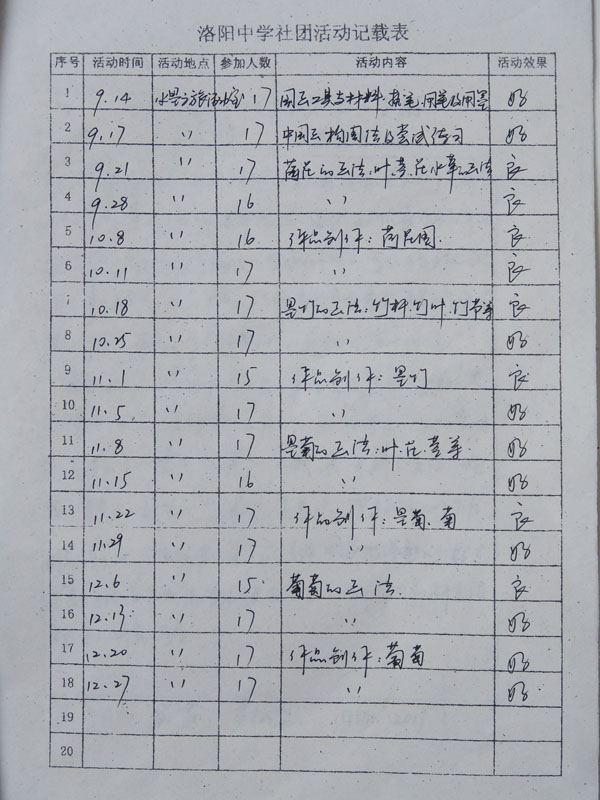 洛阳中学社团活动记载表
序号 活动时间 活动地点 参加人数 活动内容 活动效果
1 9.14 水墨之旅活动室 17 国画工具与材料.执笔.用笔及用墨 好
2 9.17 〃 17 中国画构图法及尝试练习 好
3 9.21 〃 17 荷花的画法,叶.茎.花水草的画法 良
4 9.28 〃 16 〃 良
5 10.8 〃 16 作品创作:荷花图. 良
6 10.11 〃 17 〃 良
7 10.18 〃 17 墨竹的画法:竹杆.竹叶.竹节等 良
8 10.25 〃 17 〃 好
9 11.1 〃 15 作品创作:墨竹 良
10 11.5 〃 17 〃 好
11 11.8 〃 17 墨菊的画法:叶.花.茎等. 好
12 11.15 〃 16 〃 好
13 11.22 〃 17 作品创作:墨菊.菊 良
14 11.29 〃 17 〃 好
15 12.6 〃 15 葡萄的画法. 良
16 12.13 〃 17 〃 好
17 12.20 〃 17 作品创作:葡萄 好
18 12.27 〃 17 〃 好
19
20